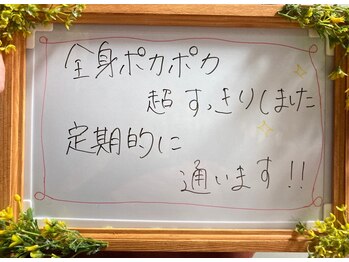 全身ポカポカ
超すっきりしました
定期的に
通います!!